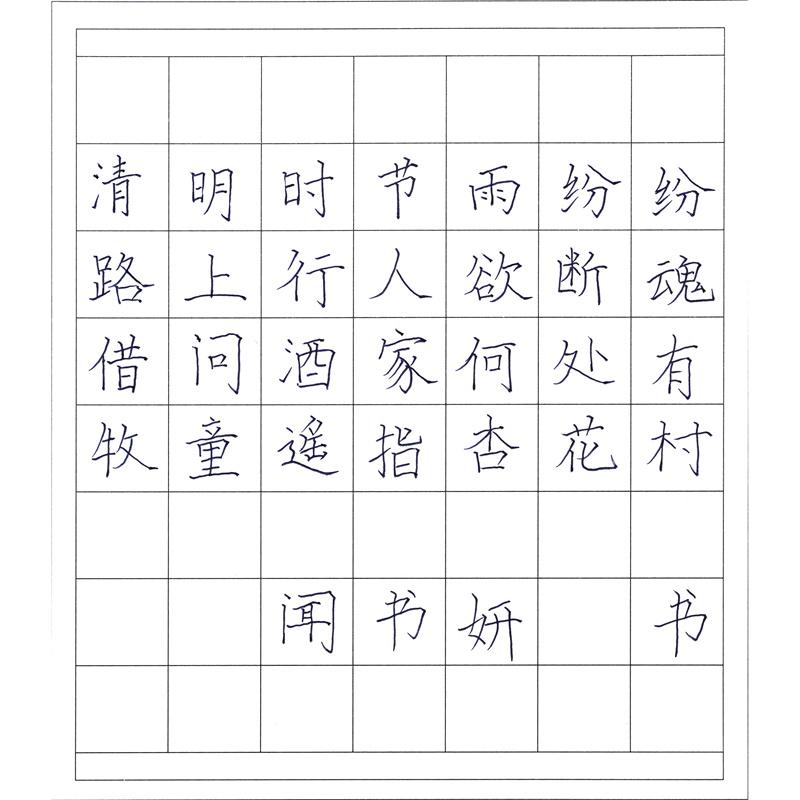 清明时节雨纷纷
路上行人欲断魂
借问酒家何处有
牧童遥指杏花村
闻书妍 书